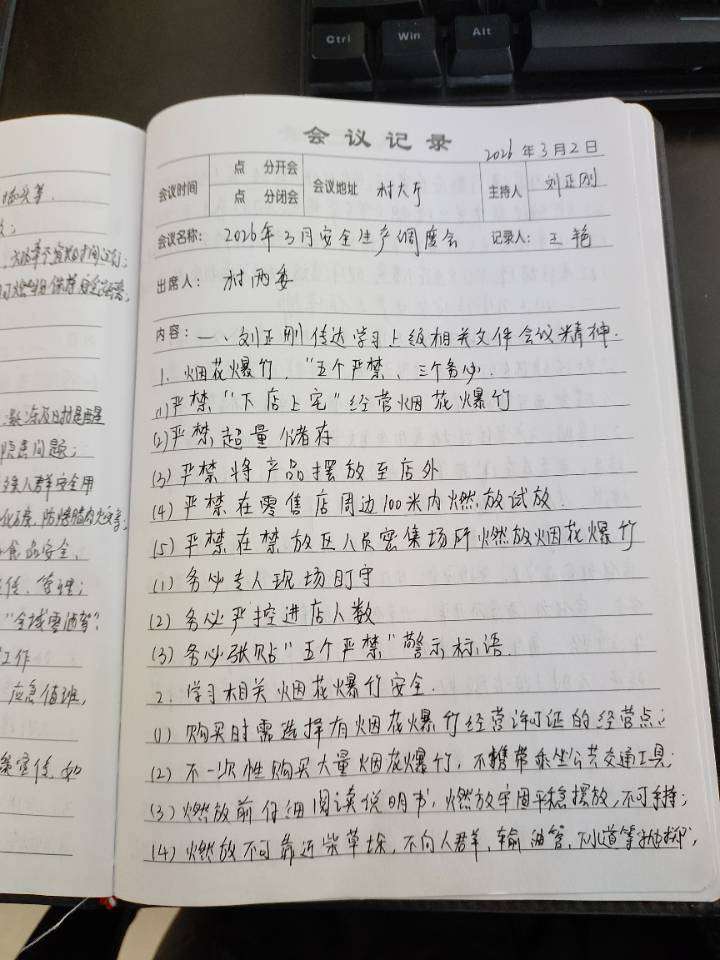 Ctrl
Win
Alt
会议记录
2026年3月2日
会议时间 点 分开会 点 分闭会 会议地址 村大厅 主持人 刘正刚
会议名称: 2026年3月安全生产调度会 记录人: 王艳
出席人: 村两委
内容: 一、刘正刚传达学习上级相关文件会议精神.
1. 烟花爆竹,"五个严禁、三个务必.
(1)严禁"下店上宅"经营烟花爆竹
(2)严禁超量储存
(3)严禁将产品摆放至店外
(4)严禁在零售店周边100米内燃放试放.
(5)严禁在禁放区人员密集场所燃放烟花爆竹
(1)务必专人现场盯守
(2)务必严控进店人数
(3)务必张贴"五个严禁"警示标语.
2. 学习相关烟花爆竹安全.
(1)购买时需选择有烟花爆竹经营许可证的经营点;
(2)不一次性购买大量烟花爆竹,不携带乘坐公共交通工具;
(3)燃放前仔细阅读说明书,燃放牢固平稳摆放,不可手持;
(4)燃放不可靠近柴草垛,不向人群,输油管,下水道等抛掷,
隐患问题;
人群安全用
食品安全、
管理;
工作
应急值班,
宣传,如